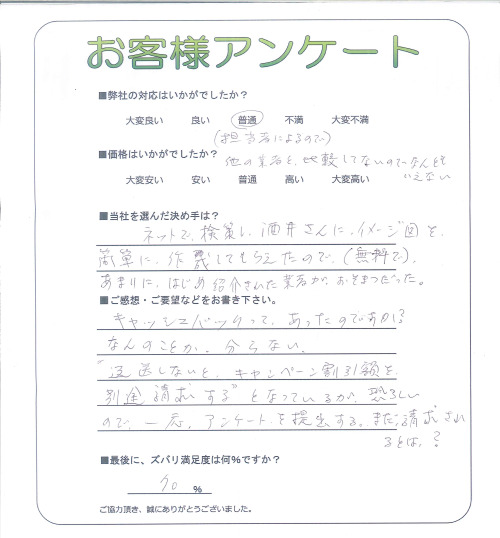 お客様アンケート
■弊社の対応はいかがでしたか？
大変良い 良い 普通 不満 大変不満
(担当者によるので)
■価格はいかがでしたか？
他の業者と、比較してないのでなんとも
いえない
大変安い 安い 普通 高い 大変高い
■当社を選んだ決め手は？
ネットで、検策し、酒井さんに、イメージ図を、
簡単に、作成してもらえたので、(無料で)、
あまりに、はじめ紹介された業者が、おそまつだった。
■ご感想・ご要望などをお書き下さい。
キャッシュバックって、あったのですか？
なんのことか、分らない、
"返送しないと、キャンペーン割引額を、
別途請求する"となっているが、恐ろしい
ので、一応、アンケートを提出する。まだ請求され
るとは、？
■最後に、ズバリ満足度は何%ですか？
%
ご協力頂き、誠にありがとうございました。